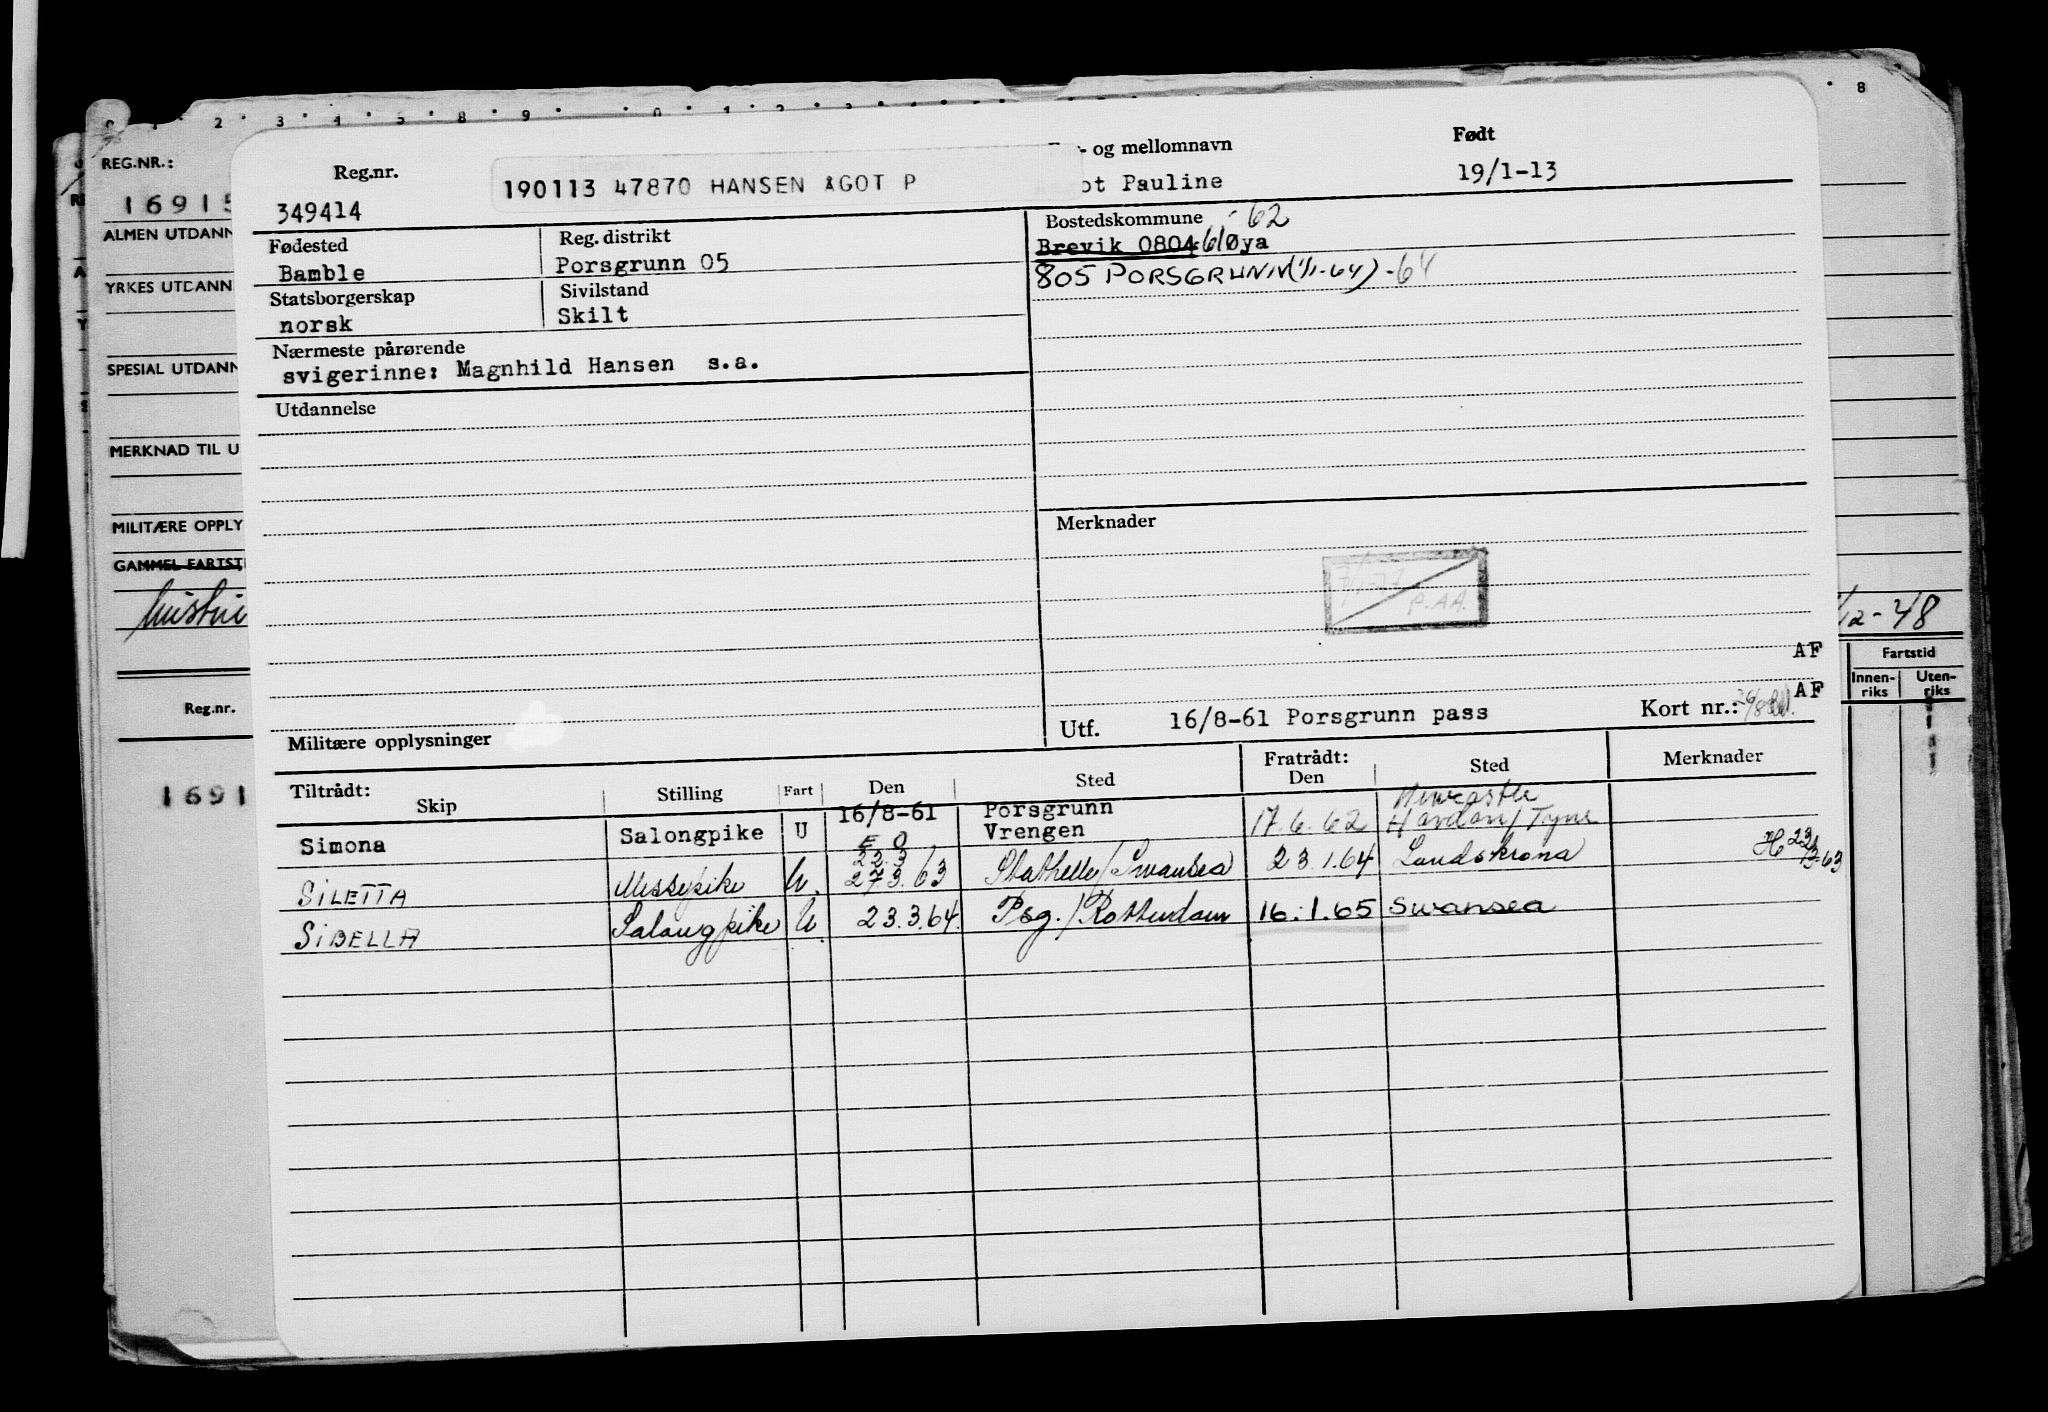 2 3 4 5 8 9 0 1 2 3 8
REG.NR.:
16915
ALMEN UTDANN
YRKES UTDANN
SPESIAL UTDANN
MERKNAD TIL U
MILITÆRE OPPLY
GAMMEL FARTST
Reg.nr.
1691
Reg.nr.
349414
190113 47870 HANSEN ÅGOT P
- og mellomnavn
ot Pauline
Født
19/1-13
Fødested
Bamble
Reg. distrikt
Porsgrunn 05
Statsborgerskap
norsk
Sivilstand
Skilt
Nærmeste pårørende
svigerinne: Magnhild Hansen s.a.
Utdannelse
Militære opplysninger
Bostedskommune -62
Brevik 0804 61 Øya
805 PORSGRUNN (1/1-64) -64
Merknader
7/1-77
P.AA.
AF
AF
Utf. 16/8-61 Porsgrunn pass
Kort nr.:
/12-48
Fartstid
Innen-riks
Uten-riks
Tiltrådt:
Skip Stilling Fart Den Sted
Fratrådt:
Den Sted Merknader
Simona Salongpike U 16/8-61 Porsgrunn Vrengen 17.6.62 Newcastle
SILETTA Messepike U. 22.3 27.3.63 Stathelle/Swansea 23.1.64 Landskrona
SIBELLA Salongpike U 23.3.64. Psg./Rotterdam 16.1.65 Swansea